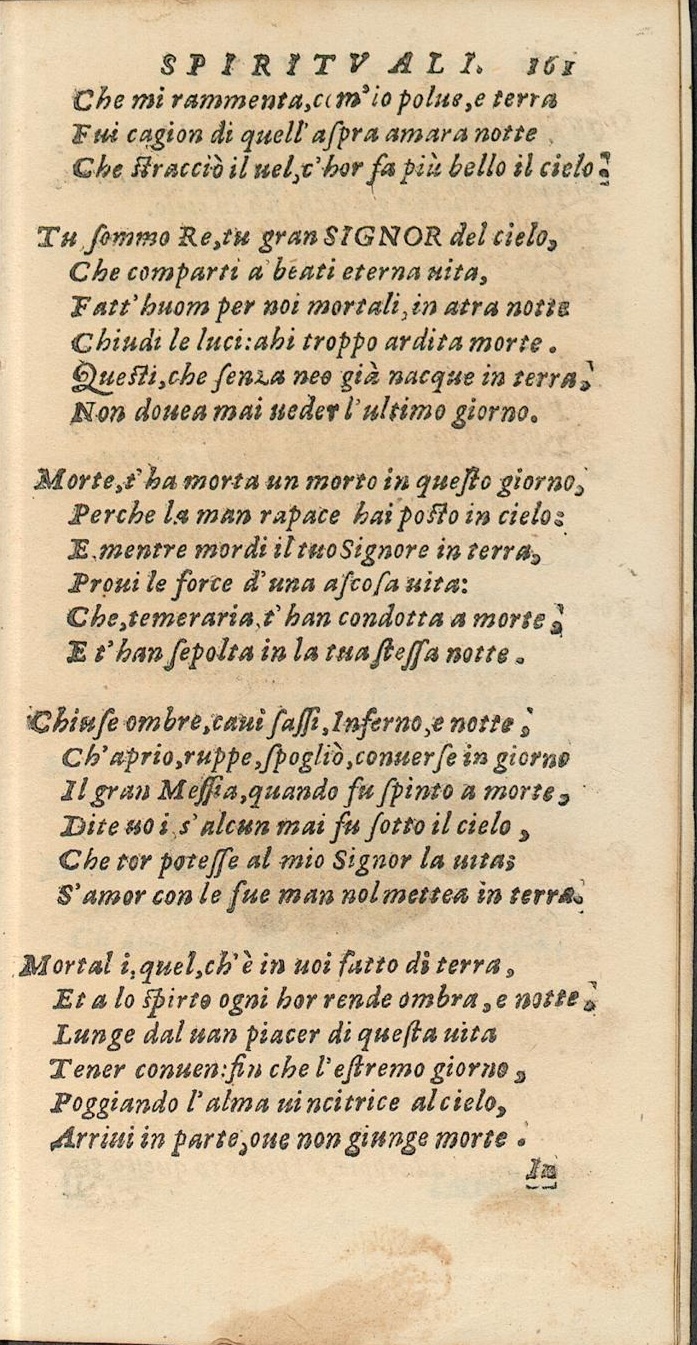 SPIRITVALI. 161
Che mi rammenta, com'io polue, e terra
Fui cagion di quell' aſpra amara notte
Che ſtracciò il uel, c'hor fa più bello il cielo.
Tu ſommo Re, tu gran SIGNOR del cielo,
Che comparti a beati eterna uita,
Fatt'huom per noi mortali, in atra notte
Chiudi le luci: ahi troppo ardita morte.
Queſti, che ſenza neo già nacque in terra,
Non douea mai ueder l'ultimo giorno.
Morte, t'ha morta un morto in queſto giorno,
Perche la man rapace hai poſto in cielo:
E, mentre mordi il tuo Signore in terra,
Proui le force d'una aſcoſa uita:
Che, temeraria, t'han condotta a morte,
E t'han ſepolta in la tua ſteſſa notte.
Chiuſe ombre, caui ſaſſi, Inferno, e notte,
Ch'aprio, ruppe, ſpogliò, conuerſe in giorno
Il gran Meſſia, quando fu ſpinto a morte,
Dite uoi, s'alcun mai fu ſotto il cielo,
Che tor poteſſe al mio Signor la uita;
S'amor con le ſue man nol mettea in terra.
Mortali, quel, ch'è in uoi fatto di terra,
Et a lo ſpirto ogni hor rende ombra, e notte,
Lunge dal uan piacer di queſta uita
Tener conuen: fin che l'eſtremo giorno,
Poggiando l'alma uincitrice al cielo,
Arriui in parte, oue non giunge morte.
In